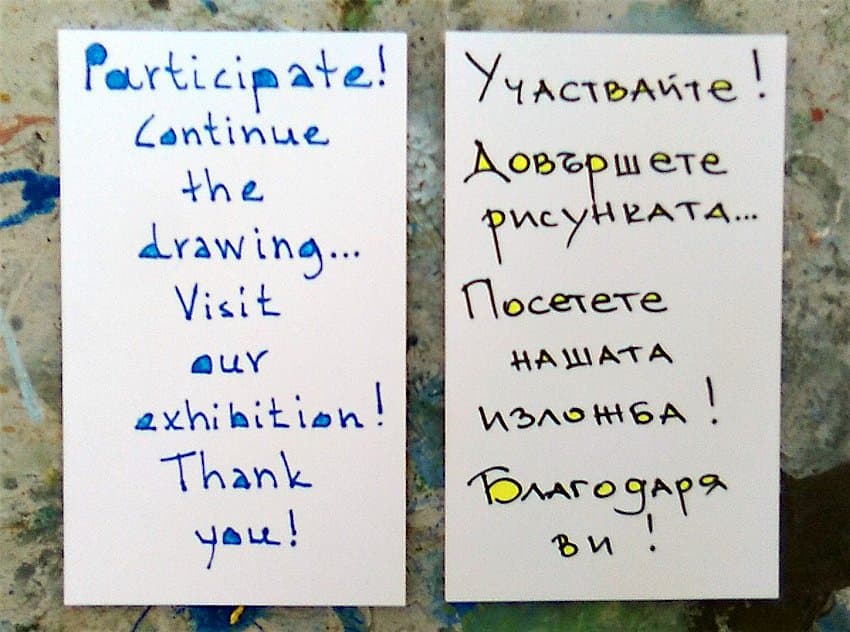 Participate!
Continue
the
drawing...
Visit
our
exhibition!
Thank
you!
Участвайте!
Довършете
рисунката...
Посетете
нашата
изложба!
Благодаря
ви!